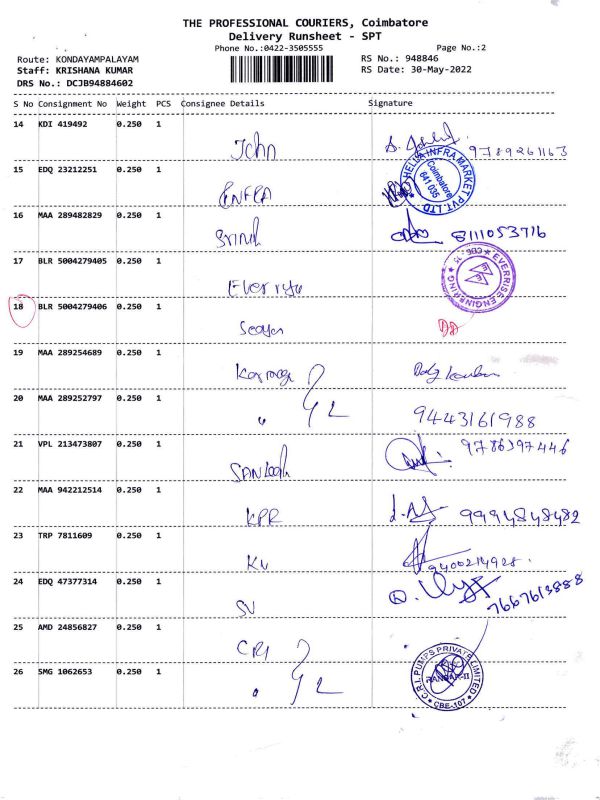 THE PROFESSIONAL COURIERS, Coimbatore
Delivery Runsheet - SPT
Phone No.:0422-3505555 Page No.:2
Route: KONDAYAMPALAYAM RS No.: 948846
Staff: KRISHANA KUMAR RS Date: 30-May-2022
DRS No.: DCJB94884602
S No Consignment No Weight PCS Consignee Details Signature
14 KDI 419492 0.250 1
John 9789261163
HELLA INFRA MARKET PVT. LTD
Coimbatore
641 035
15 EDQ 23212251 0.250 1
INFRA
16 MAA 289482829 0.250 1
8111053716
17 BLR 5004279405 0.250 1
EVERRISE ENGINEERING
CBE-35
18 BLR 5004279406 0.250 1
19 MAA 289254689 0.250 1
20 MAA 289252797 0.250 1
9443161988
21 VPL 213473807 0.250 1
9786397446
22 MAA 942212514 0.250 1
KPR 9994848482
23 TRP 7811609 0.250 1
KV 9400214928
24 EDQ 47377314 0.250 1
SV 7667613888
25 AMD 24856827 0.250 1
CRI
26 SMG 1062653 0.250 1
C.R.I. PUMPS PRIVATE LIMITED
CBE-107